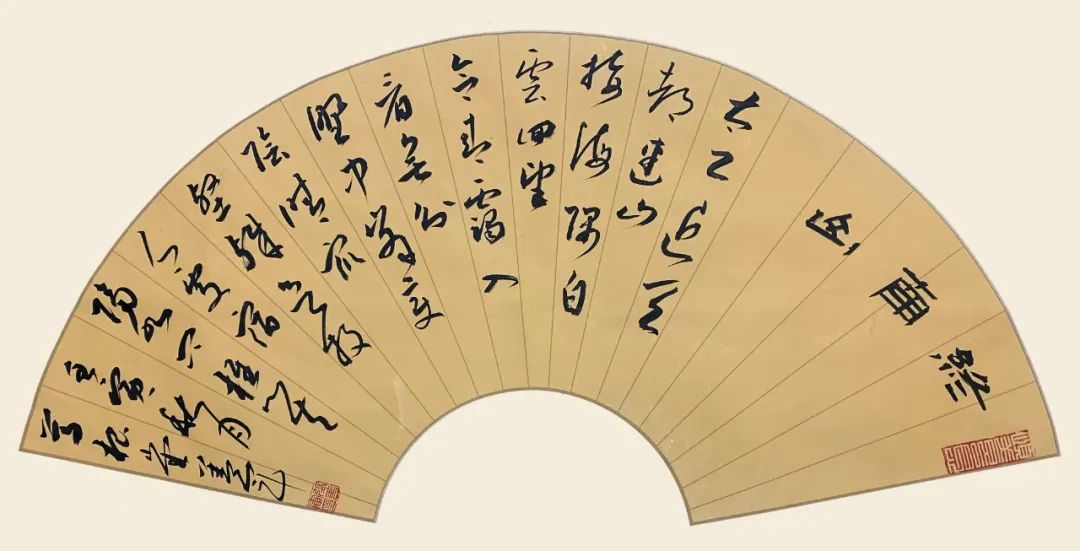 終南山
太乙近天
都連山
接海隅白
雲回望
合青靄入
看無分
野中峰變
陰晴眾
壑殊欲投
人處宿
隔水問樵夫
壬寅秋月